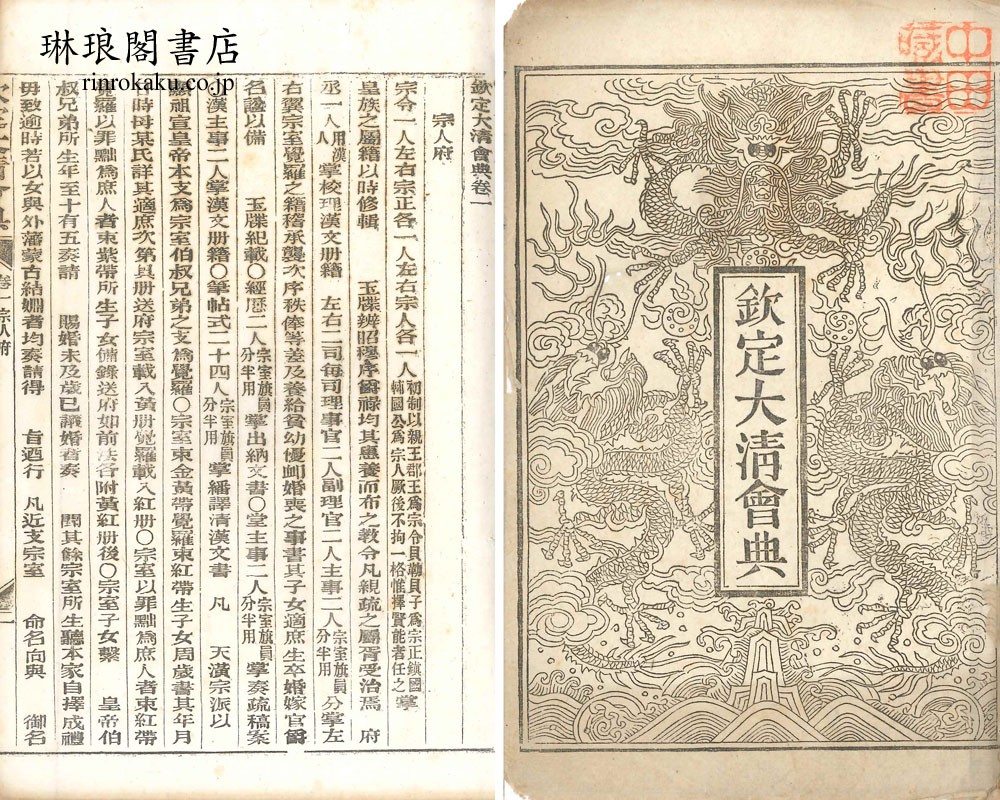 琳琅閣書店
rinrokaku.co.jp
欽定大清會典卷一
宗人府
宗令一人左右宗正各一人左右宗人各一人初制以親王郡王爲宗令貝勒貝子爲宗正鎮國輔國公爲宗人厥後不拘一格惟擇賢能者任之掌
皇族之屬籍以時修輯 玉牒辨昭穆序爵祿均其惠養而布之教令凡親疏之屬胥受治焉 府
丞一人用漢人掌校理漢文册籍 左右二司每司理事官二人副理官二人主事二人宗室旗員分半用分掌左
右翼宗室覺羅之籍稽承襲次序秩俸等差及養給貧幼優卹婚喪之事書其子女適庶生卒婚嫁官爵
名諡以備 玉牒紀載〇經歷二人宗室旗員分半用掌出納文書〇堂主事二人宗室旗員分半用掌奏疏稿案
漢主事二人掌漢文册籍〇筆帖式二十四人宗室旗員分半用掌繙譯清漢文書 凡 天潢宗派以
顯祖宣皇帝本支爲宗室伯叔兄弟之支爲覺羅〇宗室束金黃帶覺羅束紅帶生子女周歲書其年月
日時母某氏詳其適庶次第具册送府宗室載入黃册覺羅載入紅册〇宗室以罪黜爲庶人者束紅帶
覺羅以罪黜爲庶人者束紫帶所生子女備錄送府如前法各附黃紅册後〇宗室子女繫 皇帝伯
叔兄弟所生年至十有五奏請 賜婚未及歲已議婚者奏 聞其餘宗室所生聽本家自擇成禮
毋致逾時若以女與外藩蒙古結婣者均奏請得 旨迺行 凡近支宗室 命名向與 御名
卷一宗人府
一
中田藏書
欽定大清會典